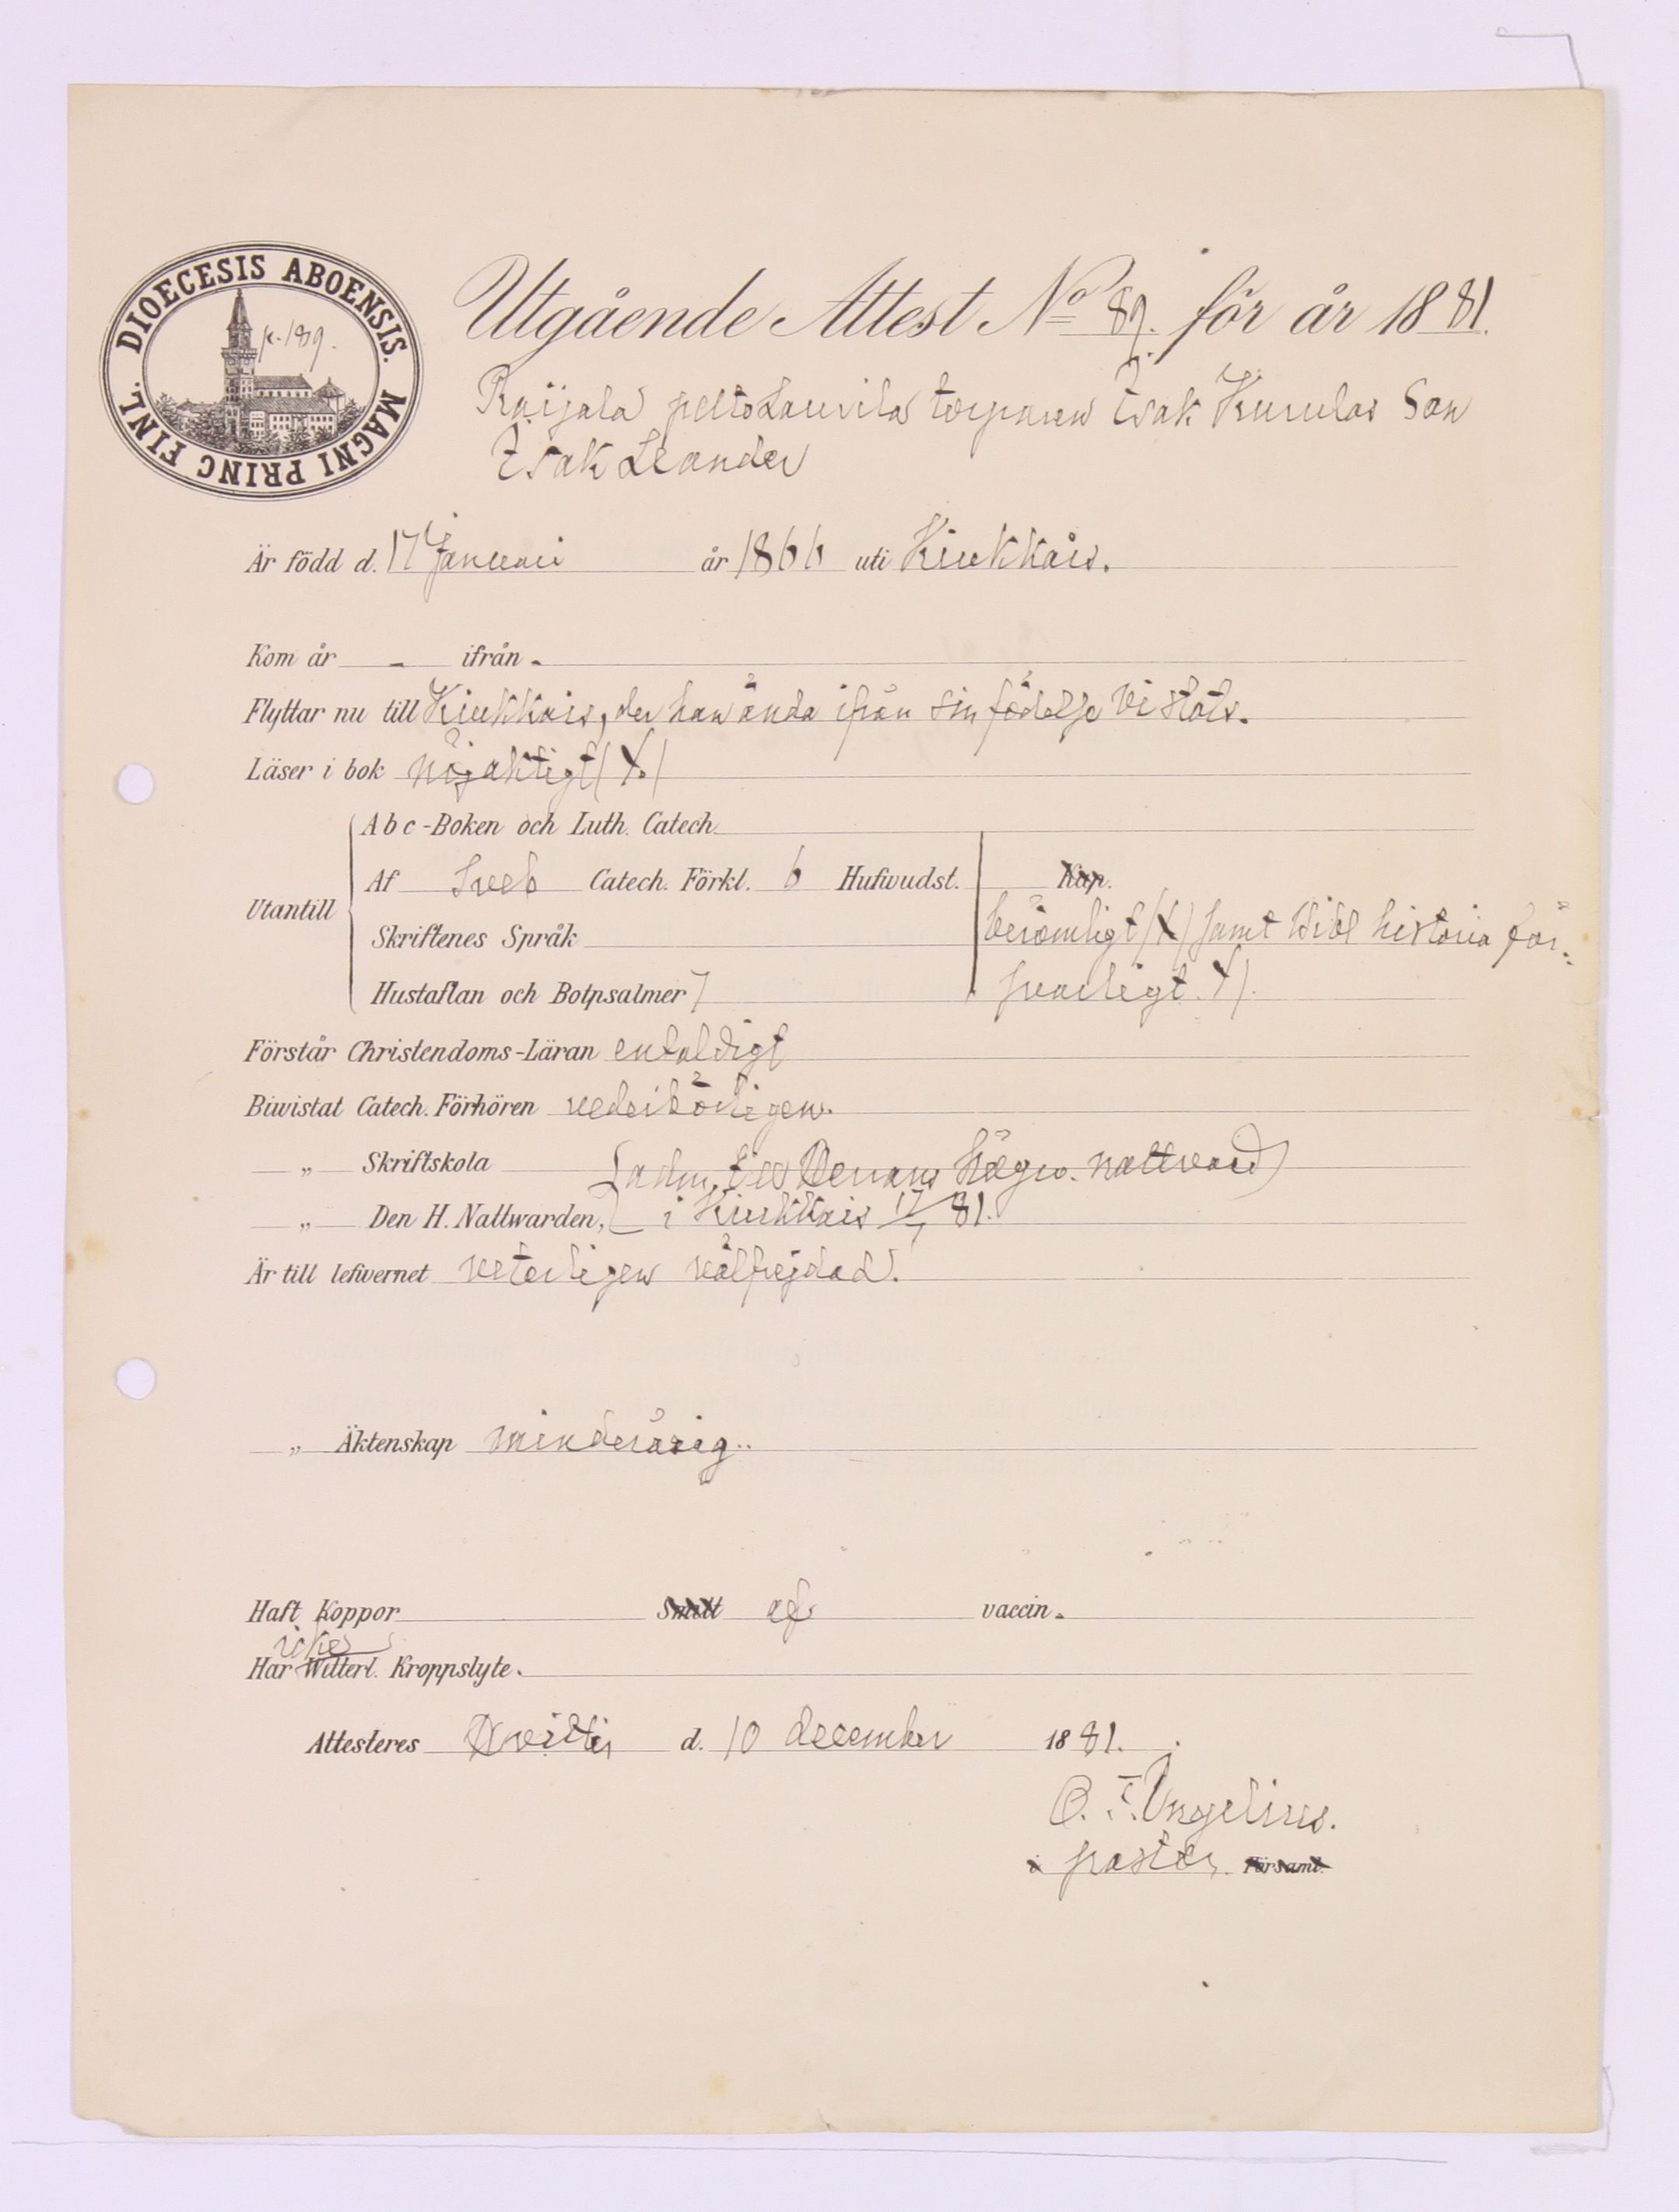 DIOECESIS ABOENSIS. MAGNI PRINC FINL.
k. 189.
Utgående Attest No 89. för år 1881.
Raijala peltoLauvila torparen Isak Kuvulas Son
Isak Leander
Är född d. 17 Januari år 1866 uti Kiukkais.
Kom år - ifrån -
Flyttar nu till Kiukkais, der han ända ifrån sin födelse Vistats.
Läser i bok nöjaktigt (X.)
Abc-Boken och Luth. Catech.
Utantill Af Sveb Catech. Förkl. 6 Hufwudst. Kap.
Skriftenes Språk berömligt (X) samt Bibl historia för-
Hustaflan och Botpsalmer svarligt X).
Förstår Christendoms-Läran enfaldigt
Biwistat Catech. Förhören vederbörligen.
„ Skriftskola (adm. till Herrans Högw. nattvard)
„ Den H. Nattwarden, i Kiukkais 17/7 81.
Är till lefwernet veterligen välfrejdad.
„ Äktenskap minderårig..
Haft Koppor Smitt af vaccin.
icke
Har Witterl. Kroppslyte.
Attesteres Hvittis d. 10 december 1881.
C. F. Ungelius.
i pastor Församl.